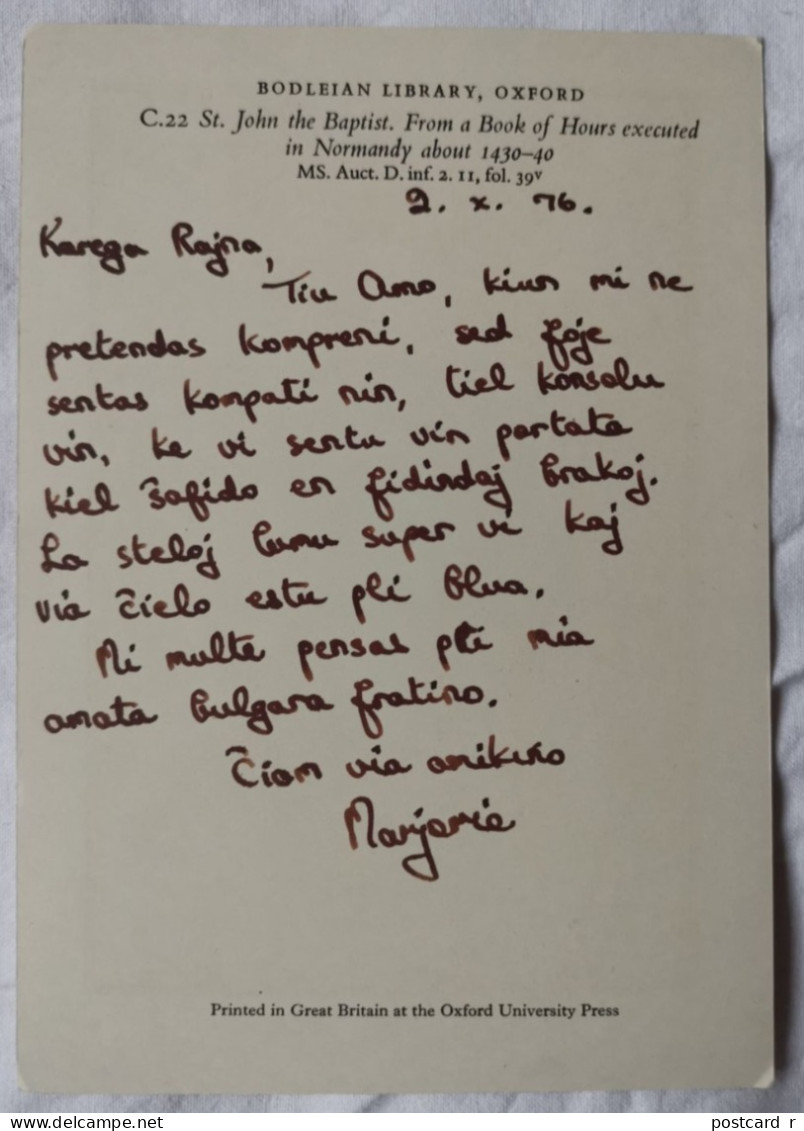 BODLEIAN LIBRARY, OXFORD
C.22 St. John the Baptist. From a Book of Hours executed
in Normandy about 1430–40
MS. Auct. D. inf. 2. 11, fol. 39v
2. x. 76.
Karega Rajna,
Tiu Amo, kiun mi ne
pretendas kompreni, sed foje
sentas kompati nin, tiel konsolu
vin, ke vi sentu vin portata
kiel ŝafido en fidindaj brakoj.
La steloj lumu super vi kaj
via ĉielo estu pli blua.
Mi multe pensas pri mia
amata bulgara fratino.
Ĉiam via amikino
Marjorie
Printed in Great Britain at the Oxford University Press
postcard_r